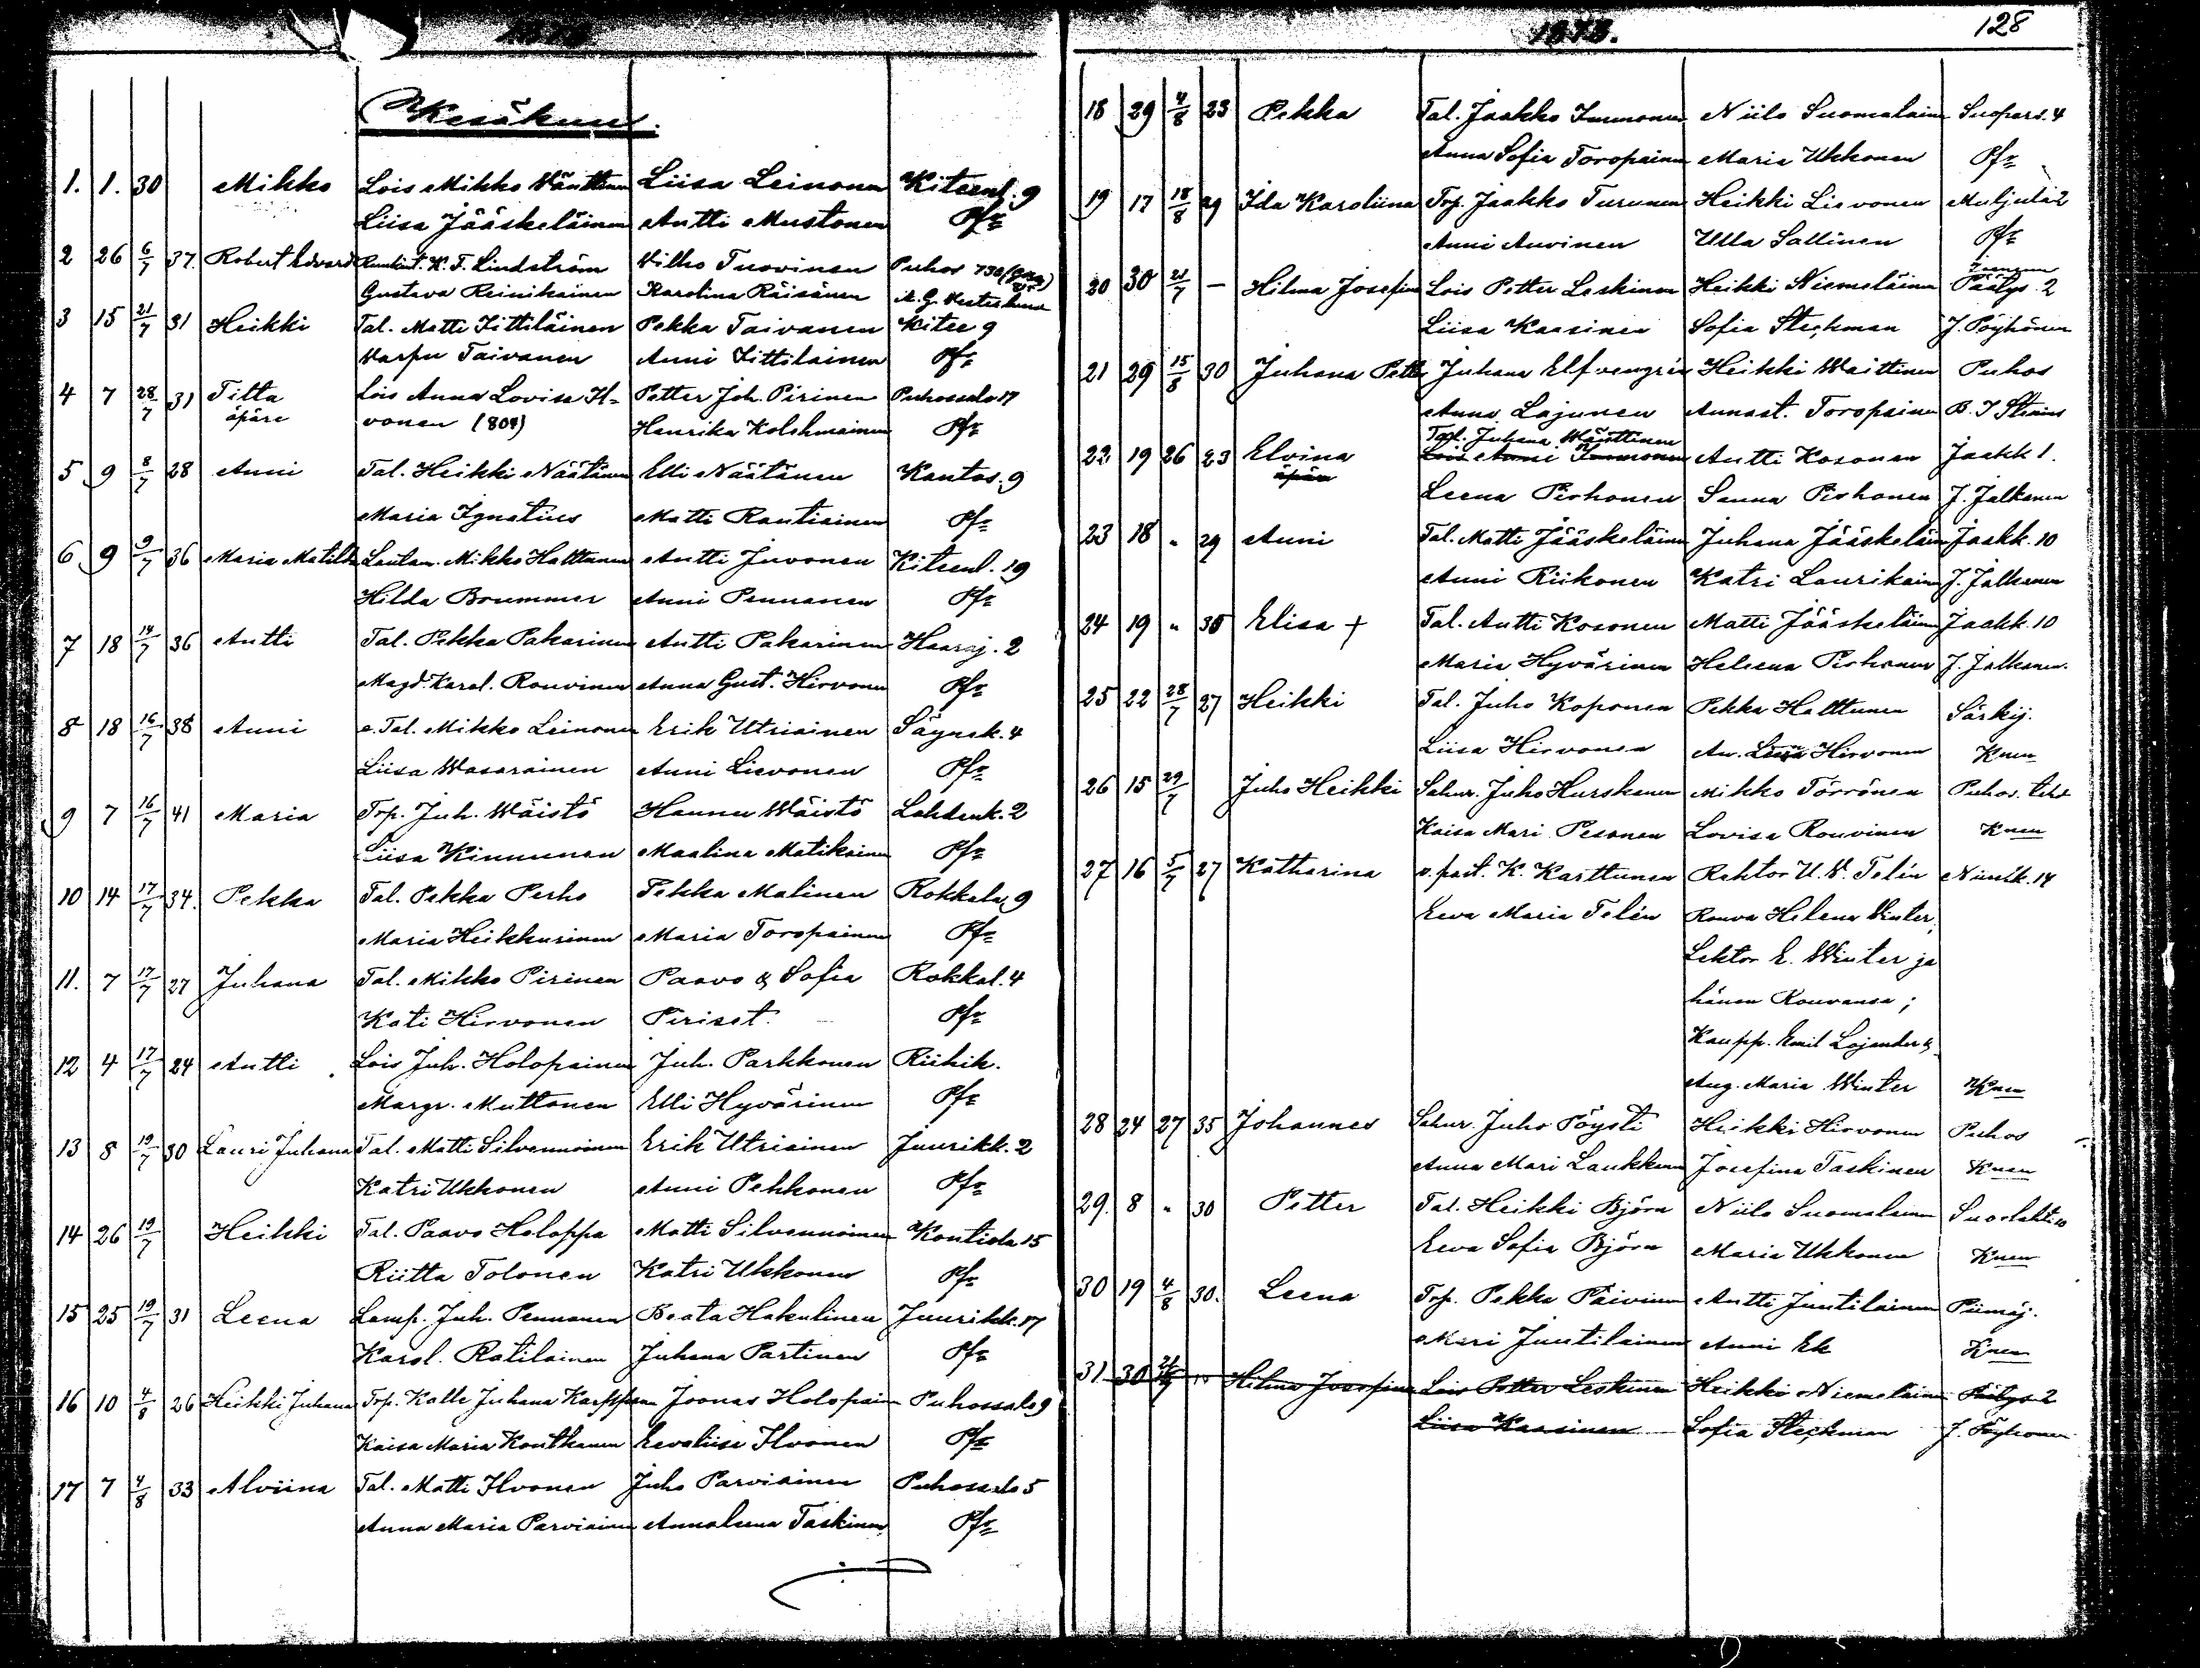 1878.
128
Kesäkuu.
1. 1. 30 Mikko Lois Mikko Wänttinen Liisa Leinonen Kiteenl. 9
Liisa Jääskeläinen Antti Mustonen Pfr
2 26 6/7 37 Robert Edvard K. F. Lindström Wilho Tuovinen Puhos
Gustava Reinikainen Karolina Räisänen A. G. Westerlund
3 15 21/7 31 Heikki Tal. Matti Tittiläinen Pekka Taivanen Kitee 9
Warpu Taivanen Anni Tittiläinen Pfr
4 7 28/7 31 Titta Lois Anna Lovisa H- Petter Joh. Pirinen Puhossalo 17
äpäre vonen (809) Henrika Kolehmainen Pfr
5 9 8/7 28 Anni Tal. Heikki Näätänen Elli Näätänen Kantos. 9
Maria Ignatius Matti Rautiainen Pfr
6 9 9/7 36 Maria Matilda Lautam. Mikko Halttunen Antti Juvonen Kiteenl. 19
Hilda Brummer Anni Pennanen Pfr
7 18 14/7 36 Antti Tal. Pekka Pakarinen Antti Pakarinen Haaraj. 2
Magd. Karol. Rouvinen Anna Gust. Hirvonen Pfr
8 18 16/7 38 Anni e. Tal. Mikko Leinonen Erik Utriainen Säynek. 4
Liisa Wasarainen Anni Lievonen Pfr
9 7 16/7 41 Maria Trp. Juh. Wäistö Hannu Wäistö Lahdenk. 2
Liisa Kinnunen Maalina Matikainen Pfr
10 14 17/7 34. Pekka Tal. Pekka Perho Pekka Malinen Rokkala 9
Maria Heikkurinen Maria Toropainen Pfr
11. 7 17/7 27 Juhana Tal. Mikko Pirinen Paavo & Sofia Rokkal. 4
Kati Hirvonen Piriset. Pfr
12 4 17/7 24 Antti Lois Juh. Holopainen Juh. Parkkonen Riihik.
Margr. Muttonen Elli Hyvärinen Pfr
13 8 19/7 30 Lauri Juhana Tal. Matti Silvennoinen Erik Utriainen Juurikk. 2
Katri Ukkonen Anni Pekkonen Pfr
14 26 19/7 Heikki Tal. Paavo Holoppa Matti Silvennoinen Kontiola 15
Riitta Tolonen Katri Ukkonen Pfr
15 25 19/7 31 Leena Lamp. Juh. Pennanen Beata Hakulinen Juurikk. 17
Karol. Ratilainen Juhana Partinen Pfr
16 10 4/8 26 Heikki Juhana Trp. Kalle Juhana Karppanen Joonas Holopain Puhossalo 9
Kaisa Maria Kontkanen Eevaliisa Ilvonen Pfr
17 7 4/8 33 Alviina Tal. Matti Ilvonen Juho Parviainen Puhossalo 5
Anna Maria Parviainen Annaleena Taskinen Pfr
18 29 4/8 23 Pekka Tal. Jaakko Immonen Niilo Suomalainen Suopars. 4
Anna Sofia Toropainen Maria Ukkonen Pfr
19 17 18/8 29 Ida Karoliina Trp. Jaakko Turunen Heikki Lievonen Muljula 2
Anni Auvinen Ulla Sallinen Pfr
20 30 21/7 — Hilma Josefina Lois Petter Leskinen Heikki Niemeläinen Päätys 2
Liisa Kaasinen Sofia Steckman J. Pöyhönen
21 29 15/8 30 Juhana Petter Juhana Elfvengrén Heikki Waittinen Puhos
Anna Lajunen Annast. Toropainen
22 19 26 23 Elvina Tal. Juhana Wänttinen Lois Anni Immonen Antti Kosonen Jaakk 1.
äpärä Leena Pirhonen Sanna Pirhonen J. Jalkanen
23 18 " 29 Anni Tal. Matti Jääskeläinen Juhana Jääskeläin Jaakk. 10
Anni Riikonen Katri Laurikainen J. Jalkanen
24 19 " 35 Elisa + Tal. Antti Kosonen Matti Jääskeläinen Jaakk. 10
Maria Hyvärinen Heleena Pirhonen J. Jalkanen.
25 22 28/7 27 Heikki Tal. Juho Koponen Pekka Halttunen Särkij.
Liisa Hirvonen An. Liisa Hirvonen Knen
26 15 29/7 Juho Heikki Sahur. Juho Hurskanen Mikko Törrönen Puhos. tehd
Kaisa Mari Pesonen Lovisa Rouvinen Knen
27 16 5/7 27 Katharina v. past. K. Karttunen Rehtor U. W. Telén Niinik. 14
Eeva Maria Telén Rouva Helena Winter,
Lektor E. Winter ja
hänen Rouvansa;
Kaupp. Emil Lojander &
Aug. Maria Winter Knen
28 24 27 35 Johannes Sahur. Juho Pöysti Heikki Hirvonen Puhos
Anna Mari Laukkanen Josefina Taskinen Knen
29. 8 " 30 Petter Tal. Heikki Björn Niilo Suomalainen Suorlahti 10
Eeva Sofia Björn Maria Ukkonen Knen
30 19 4/8 30. Leena Trp. Pekka Päivinen Antti Juutilainen Piimäj.
Mari Juutilainen Anni Ek Knen
31 30 21/7 " Hilma Josefina Lois Petter Leskinen Heikki Niemeläinen Päätys 2
Liisa Kaasinen Sofia Steckman J. Pöyhönen